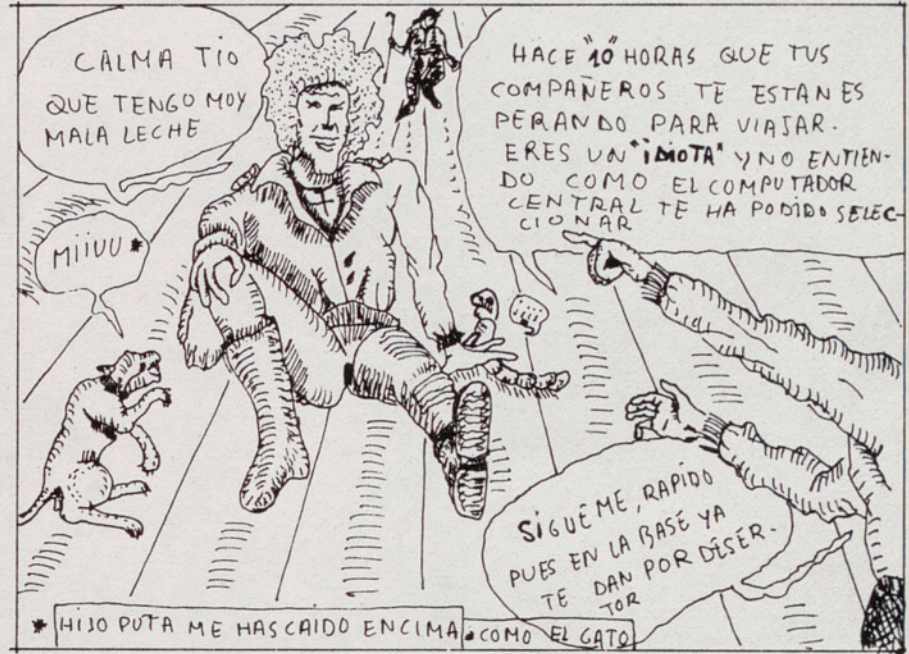 CALMA TIO
QUE TENGO MOY
MALA LECHE
HACE "10" HORAS QUE TUS
COMPAÑEROS TE ESTAN ES
PERANDO PARA VIAJAR.
ERES UN "IDIOTA" Y NO ENTIEN-
DO COMO EL COMPUTADOR
CENTRAL TE HA PODIDO SELEC-
CIONAR
MIIUU *
SIGUEME, RAPIDO
PUES EN LA BASE YA
TE DAN POR DISER-
TOR
* HIJO PUTA ME HAS CAIDO ENCIMA • COMO EL GATO